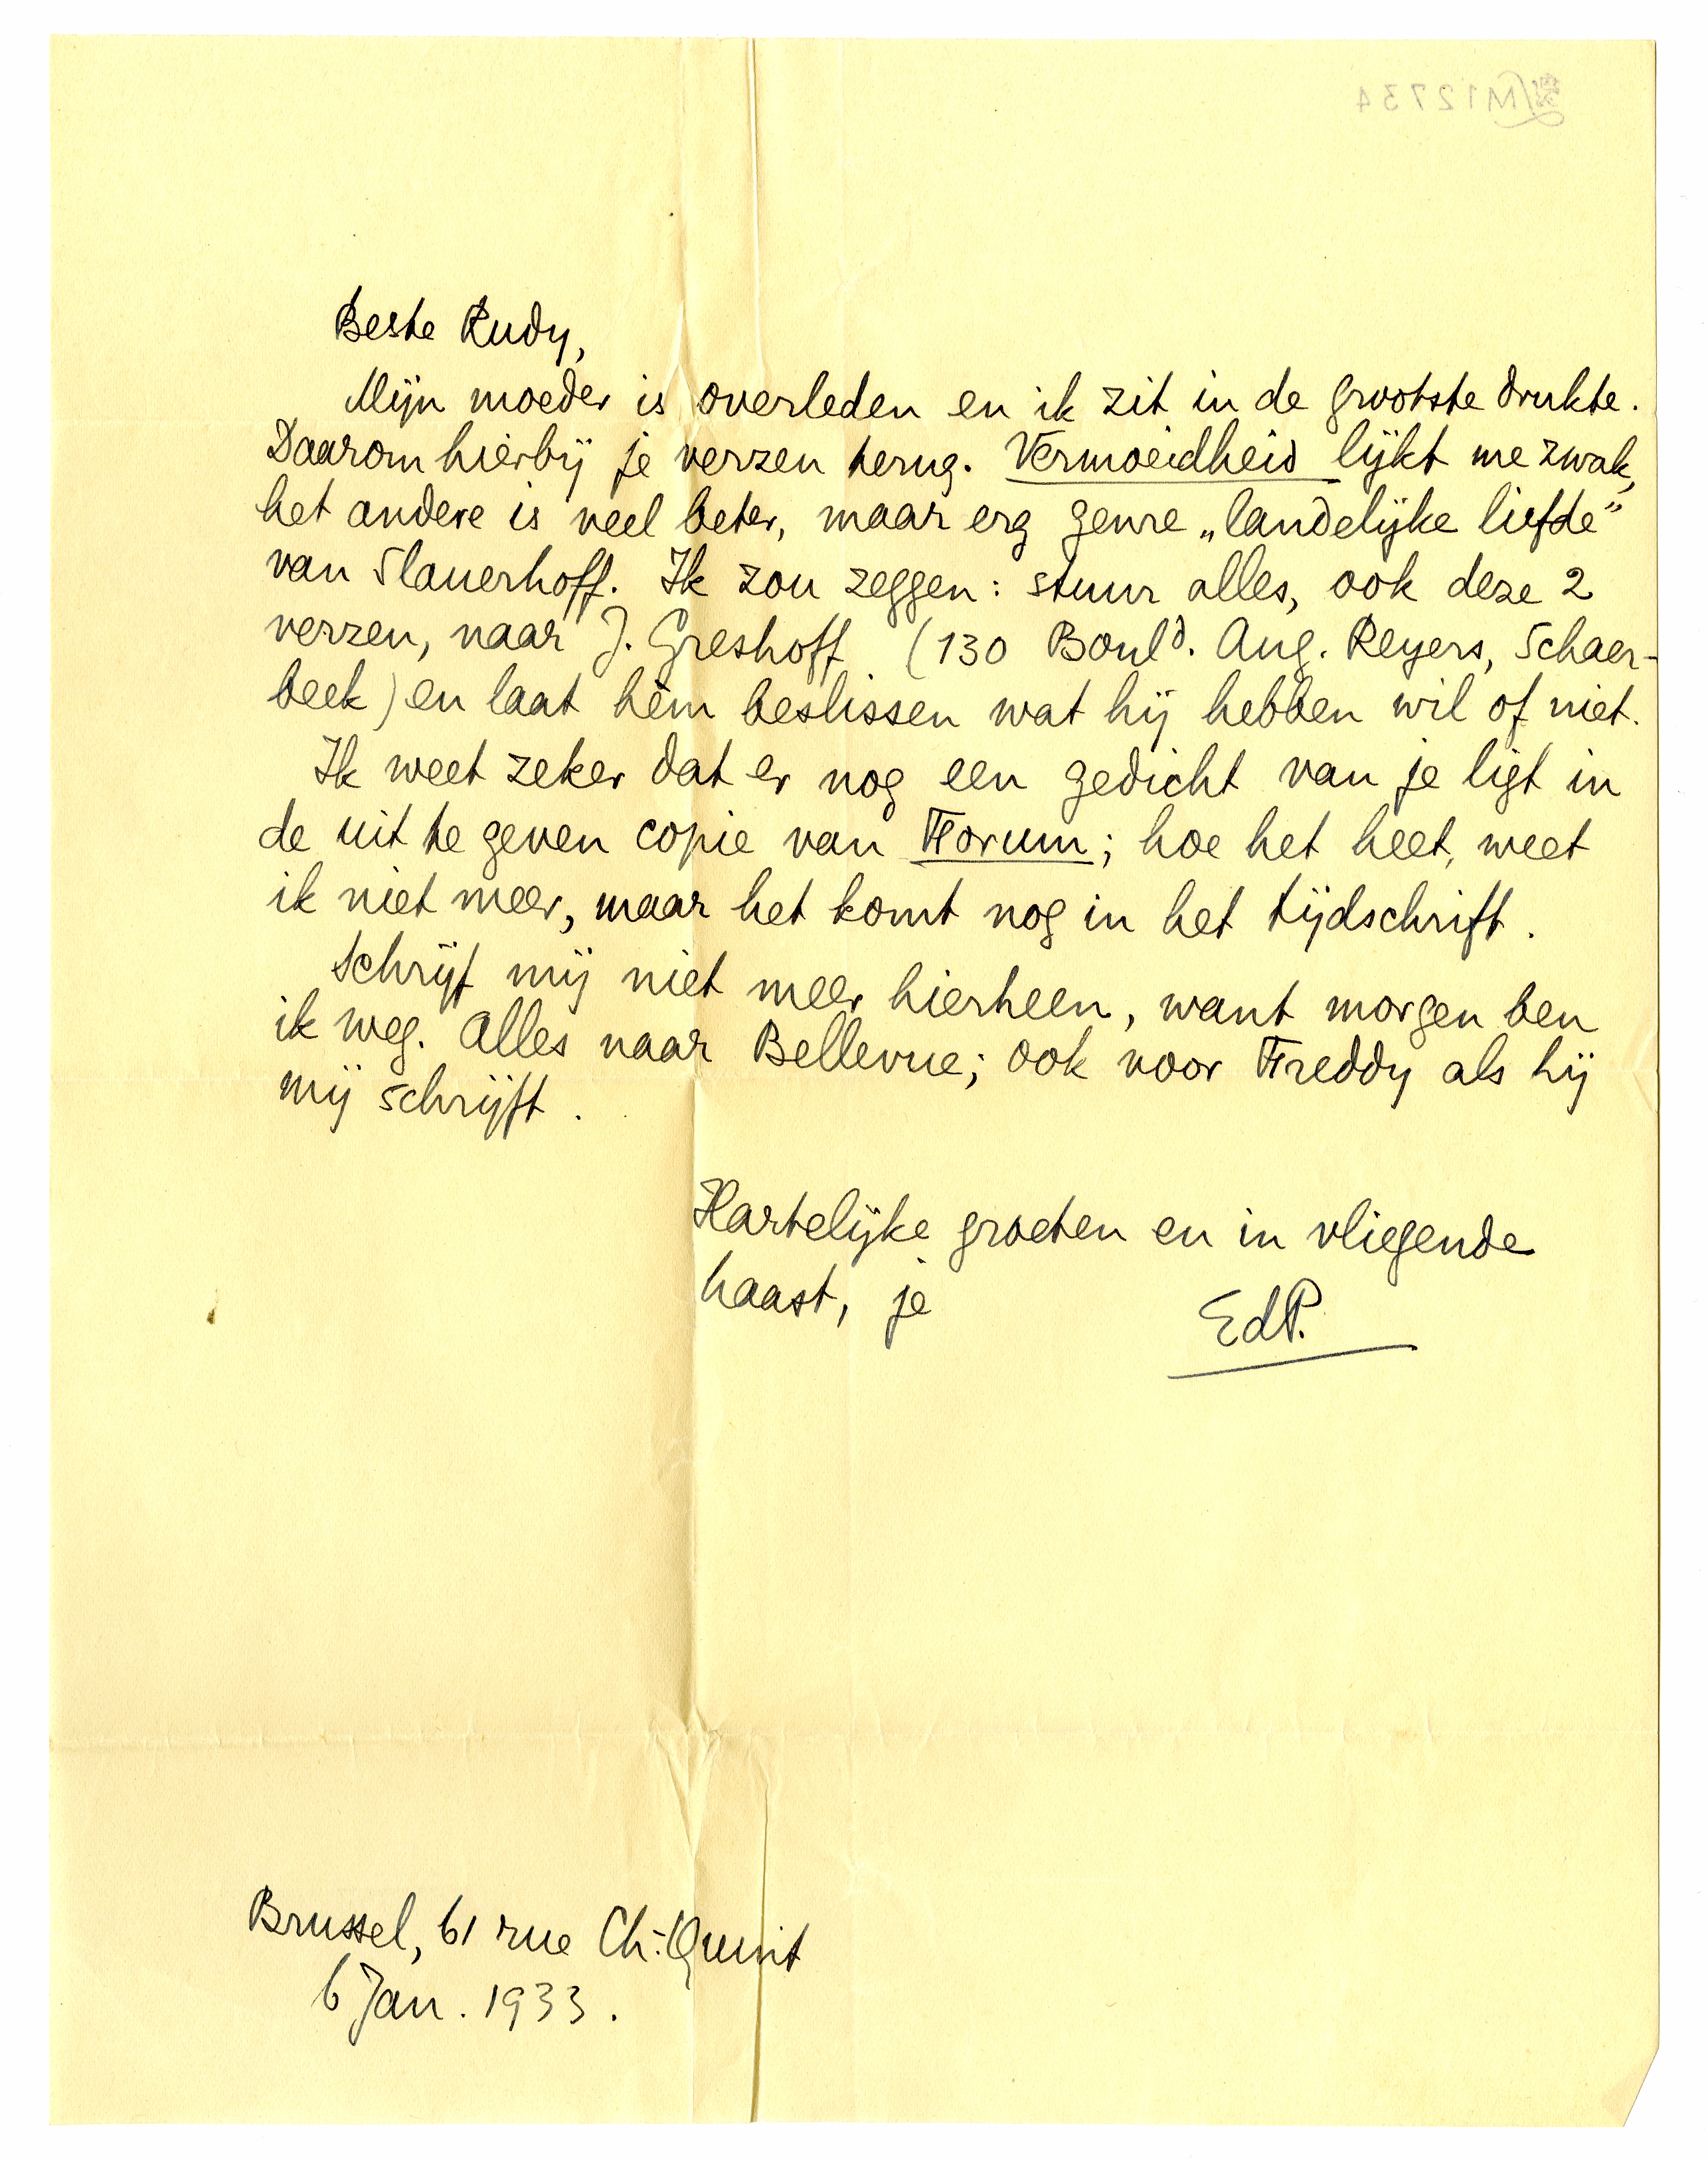 M12734
Beste Rudy,
Mijn moeder is overleden en ik zit in de grootste drukte.
Daarom hierbij je verzen terug. Vermoeidheid lijkt me zwak,
het andere is veel beter, maar erg genre „landelijke liefde”
van Slauerhoff. Ik zou zeggen: stuur alles, ook deze 2
verzen, naar J. Greshoff (130 Bould. Aug. Reyers, Schaer-
beek) en laat hèm beslissen wat hij hebben wil of niet.
Ik weet zeker dat er nog een gedicht van je ligt in
de uit te geven copie van Forum; hoe het heet, weet
ik niet meer, maar het komt nog in het tijdschrift.
Schrijf mij niet meer hierheen, want morgen ben
ik weg. Alles naar Bellevue; ook voor Freddy als hij
mij schrijft.
Hartelijke groeten en in vliegende
haast, je EdP.
Brussel, 61 rue Ch.-Quint
6 Jan. 1933.